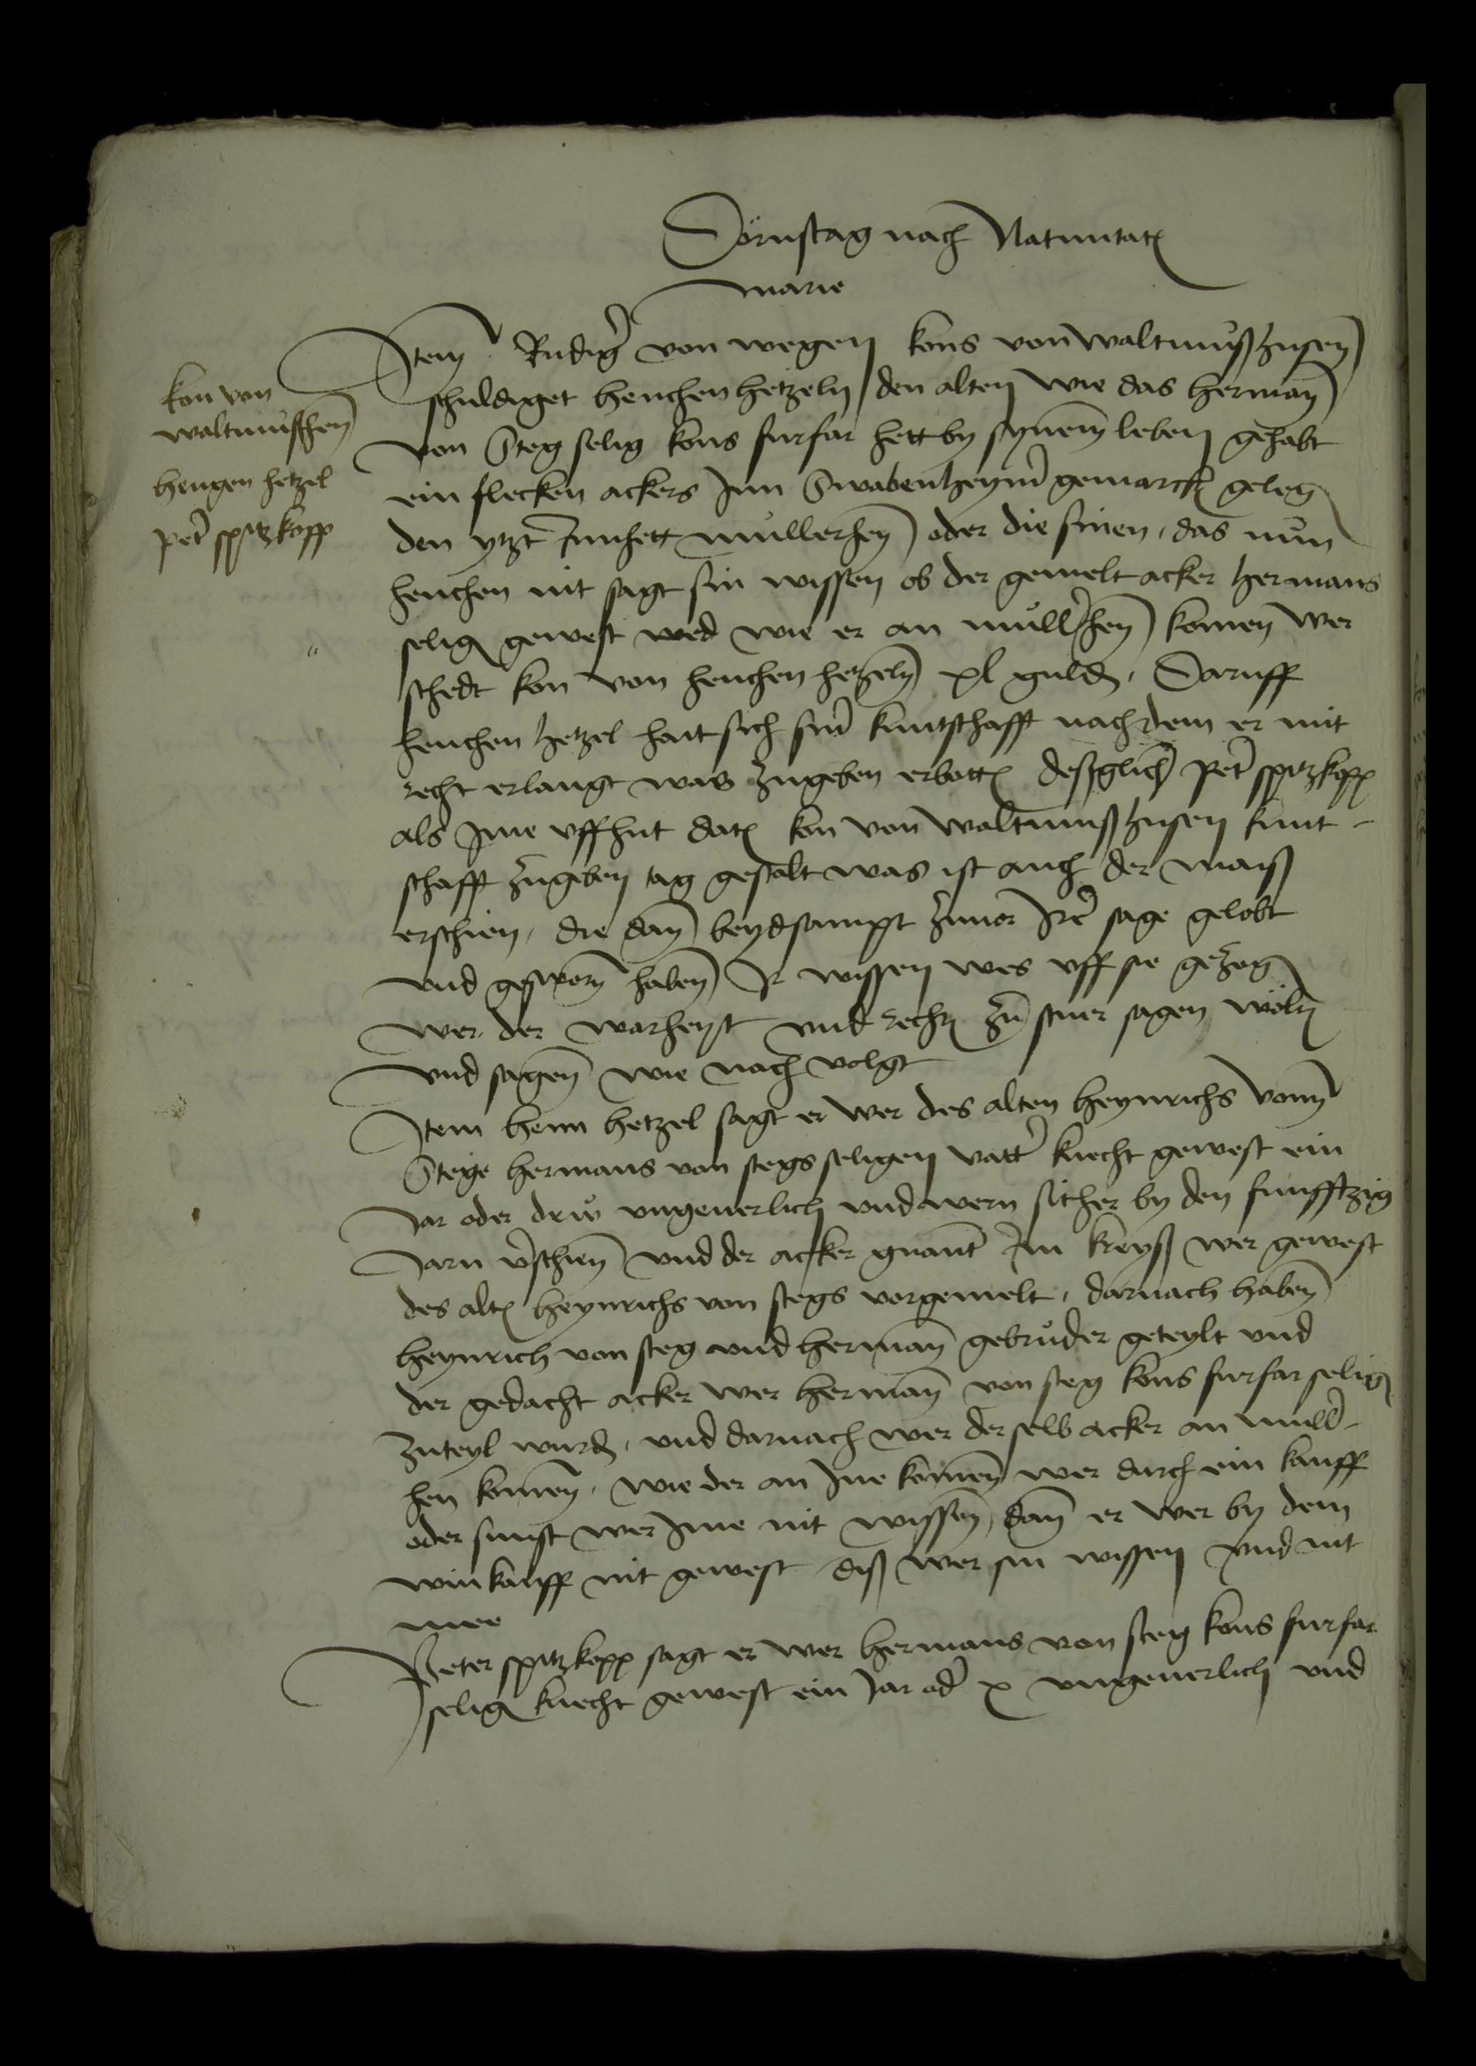 Dörnstag nach Natiuitat(is)
marie
kon von
waltmůsh(en)
hengen hetzel
pet(er) spitzkopp
Item Rudig(er) von wegen kons von waltmůßhusen
schuldiget henchen hetzeln den alten wie das herman
von Steg selig kons furfar hett by synem leben gehabt
ein flecken ackers Inn Swabenheym(er) gemarck geleg(en)
den ytzt Innhett mullerhen oder die sinen, das nůn
henchen nit sagt sin wissen ob der gemelt acker hermans
selig gewest und wie er an můll(er)hen komen wer
schedt kon von henchen hetzeln xl guld(en), Daruff
henchen hetzel hait sich sin(er) kuntschafft nach dem er mit
recht erlangt was zugeben erbott(en) deßglich(en) pet(er) spitzkopp
als Ime vff hut dat(um) kon von waltmußhusen kunt-
schafft zugeben tag gestalt was ist auch der maiß
erschien, die dan beydsampt zuuor Ire sage gelobt
vnd gesworn haben Ir wissen wes vff sie gezog(en)
wer der warheyt vnd recht(en) zu stuer sagen wöl(en)
vnd sagen wie nach volgt
Item henn hetzel sagt er wer des alten heynrichs vom
Stege hermans von stegs seligen vatt(er) knecht gewest ein
Jar oder drü vngeuerlich vnd wern sither by den funfftzig
Jarn v(er)schien vnd der acker gnant Im kreyß wer gewest
des alt(en) heynrichs von stegs vorgemelt, darnach haben
heynrich von steg vnd herman gebrůder geteylt vnd
der gedacht acker wer herman von steg kons furfar selig
zuteyl wurd(en), vnd darnach wer der selb acker an mull(er)-
hen komen, wie der an Ine komen wer durch ein kauff
oder sunst wer Ime nit wyssen, dan er wer by dem
winkauff nit gewest diß wer sin wissen vnd nit
mee
Peter spitzkopp sagt er wer hermans von steg kons furfar
selig knecht gewest ein Jar od(er) x vngeuerlich vnd